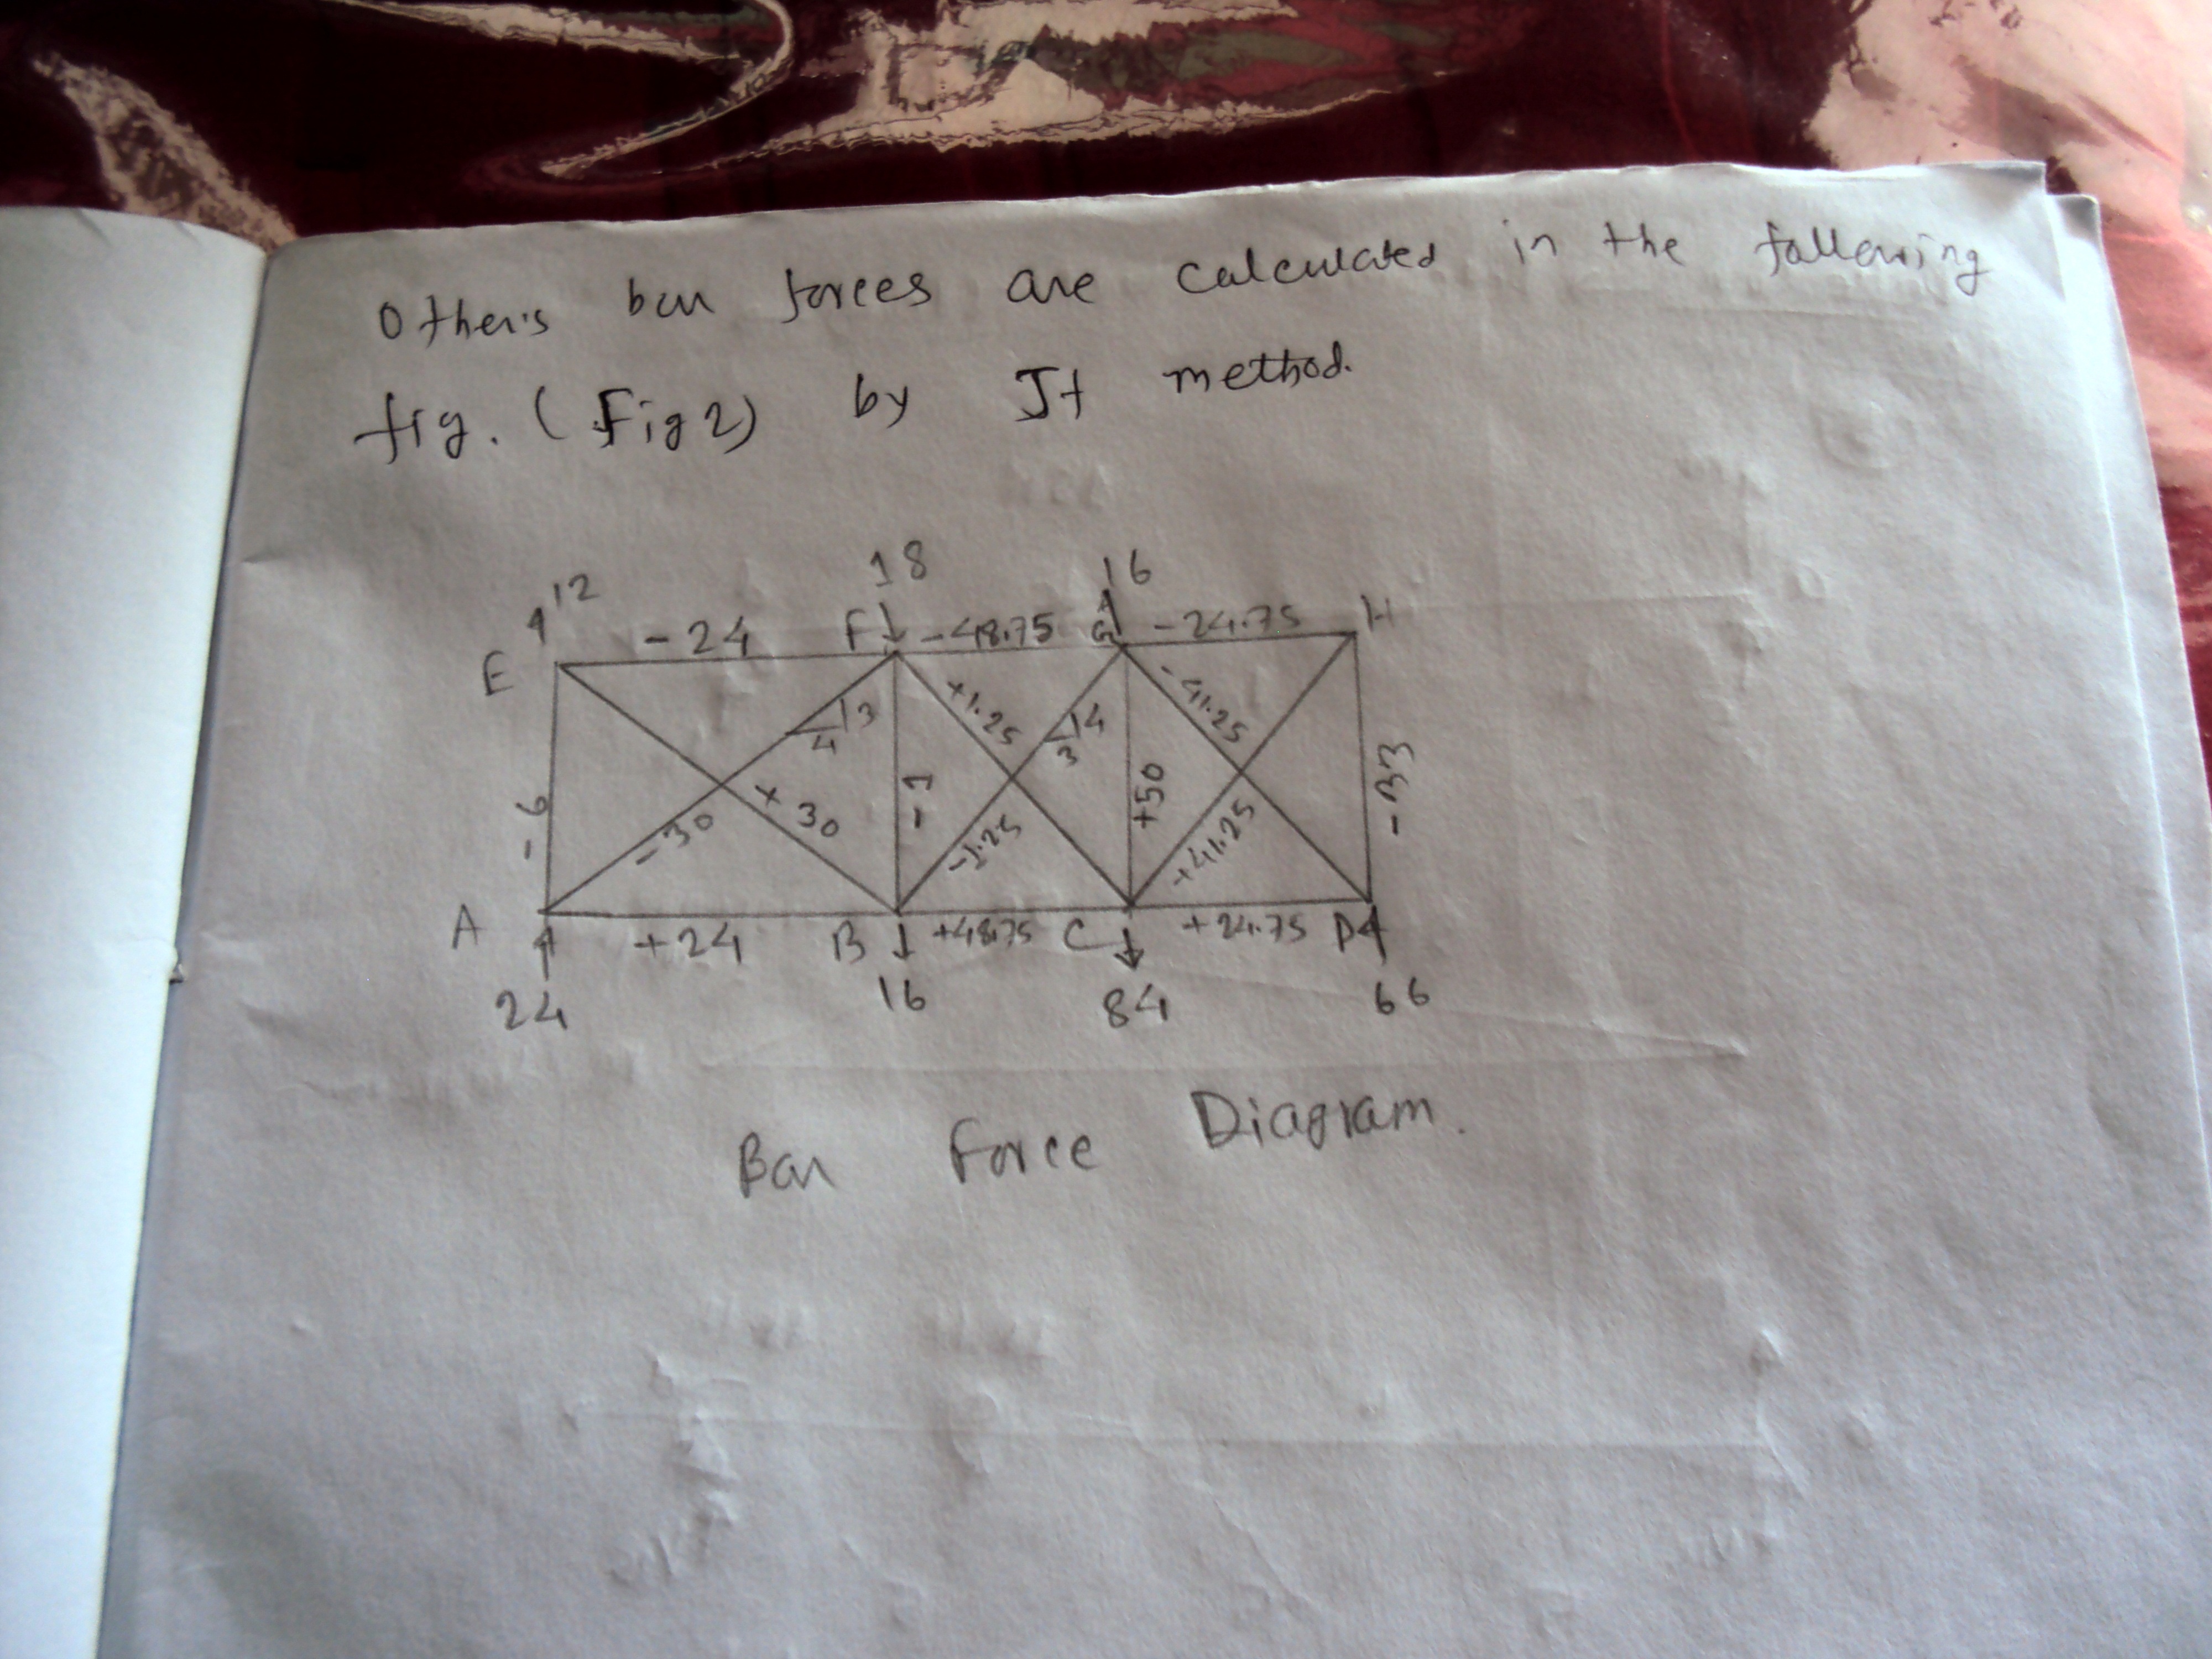 Other's bar forces are calculated in the following
fig. (Fig 2) by Jt method.
12 18 16
E -24 F -48.75 G -24.75 H
3 +1.25 4 -41.25
4 3
-6 -30 +30 -1 -1.25 +50 +41.25 -33
A +24 B +48.75 C +24.75 D
24 16 84 66
Bar Force Diagram.